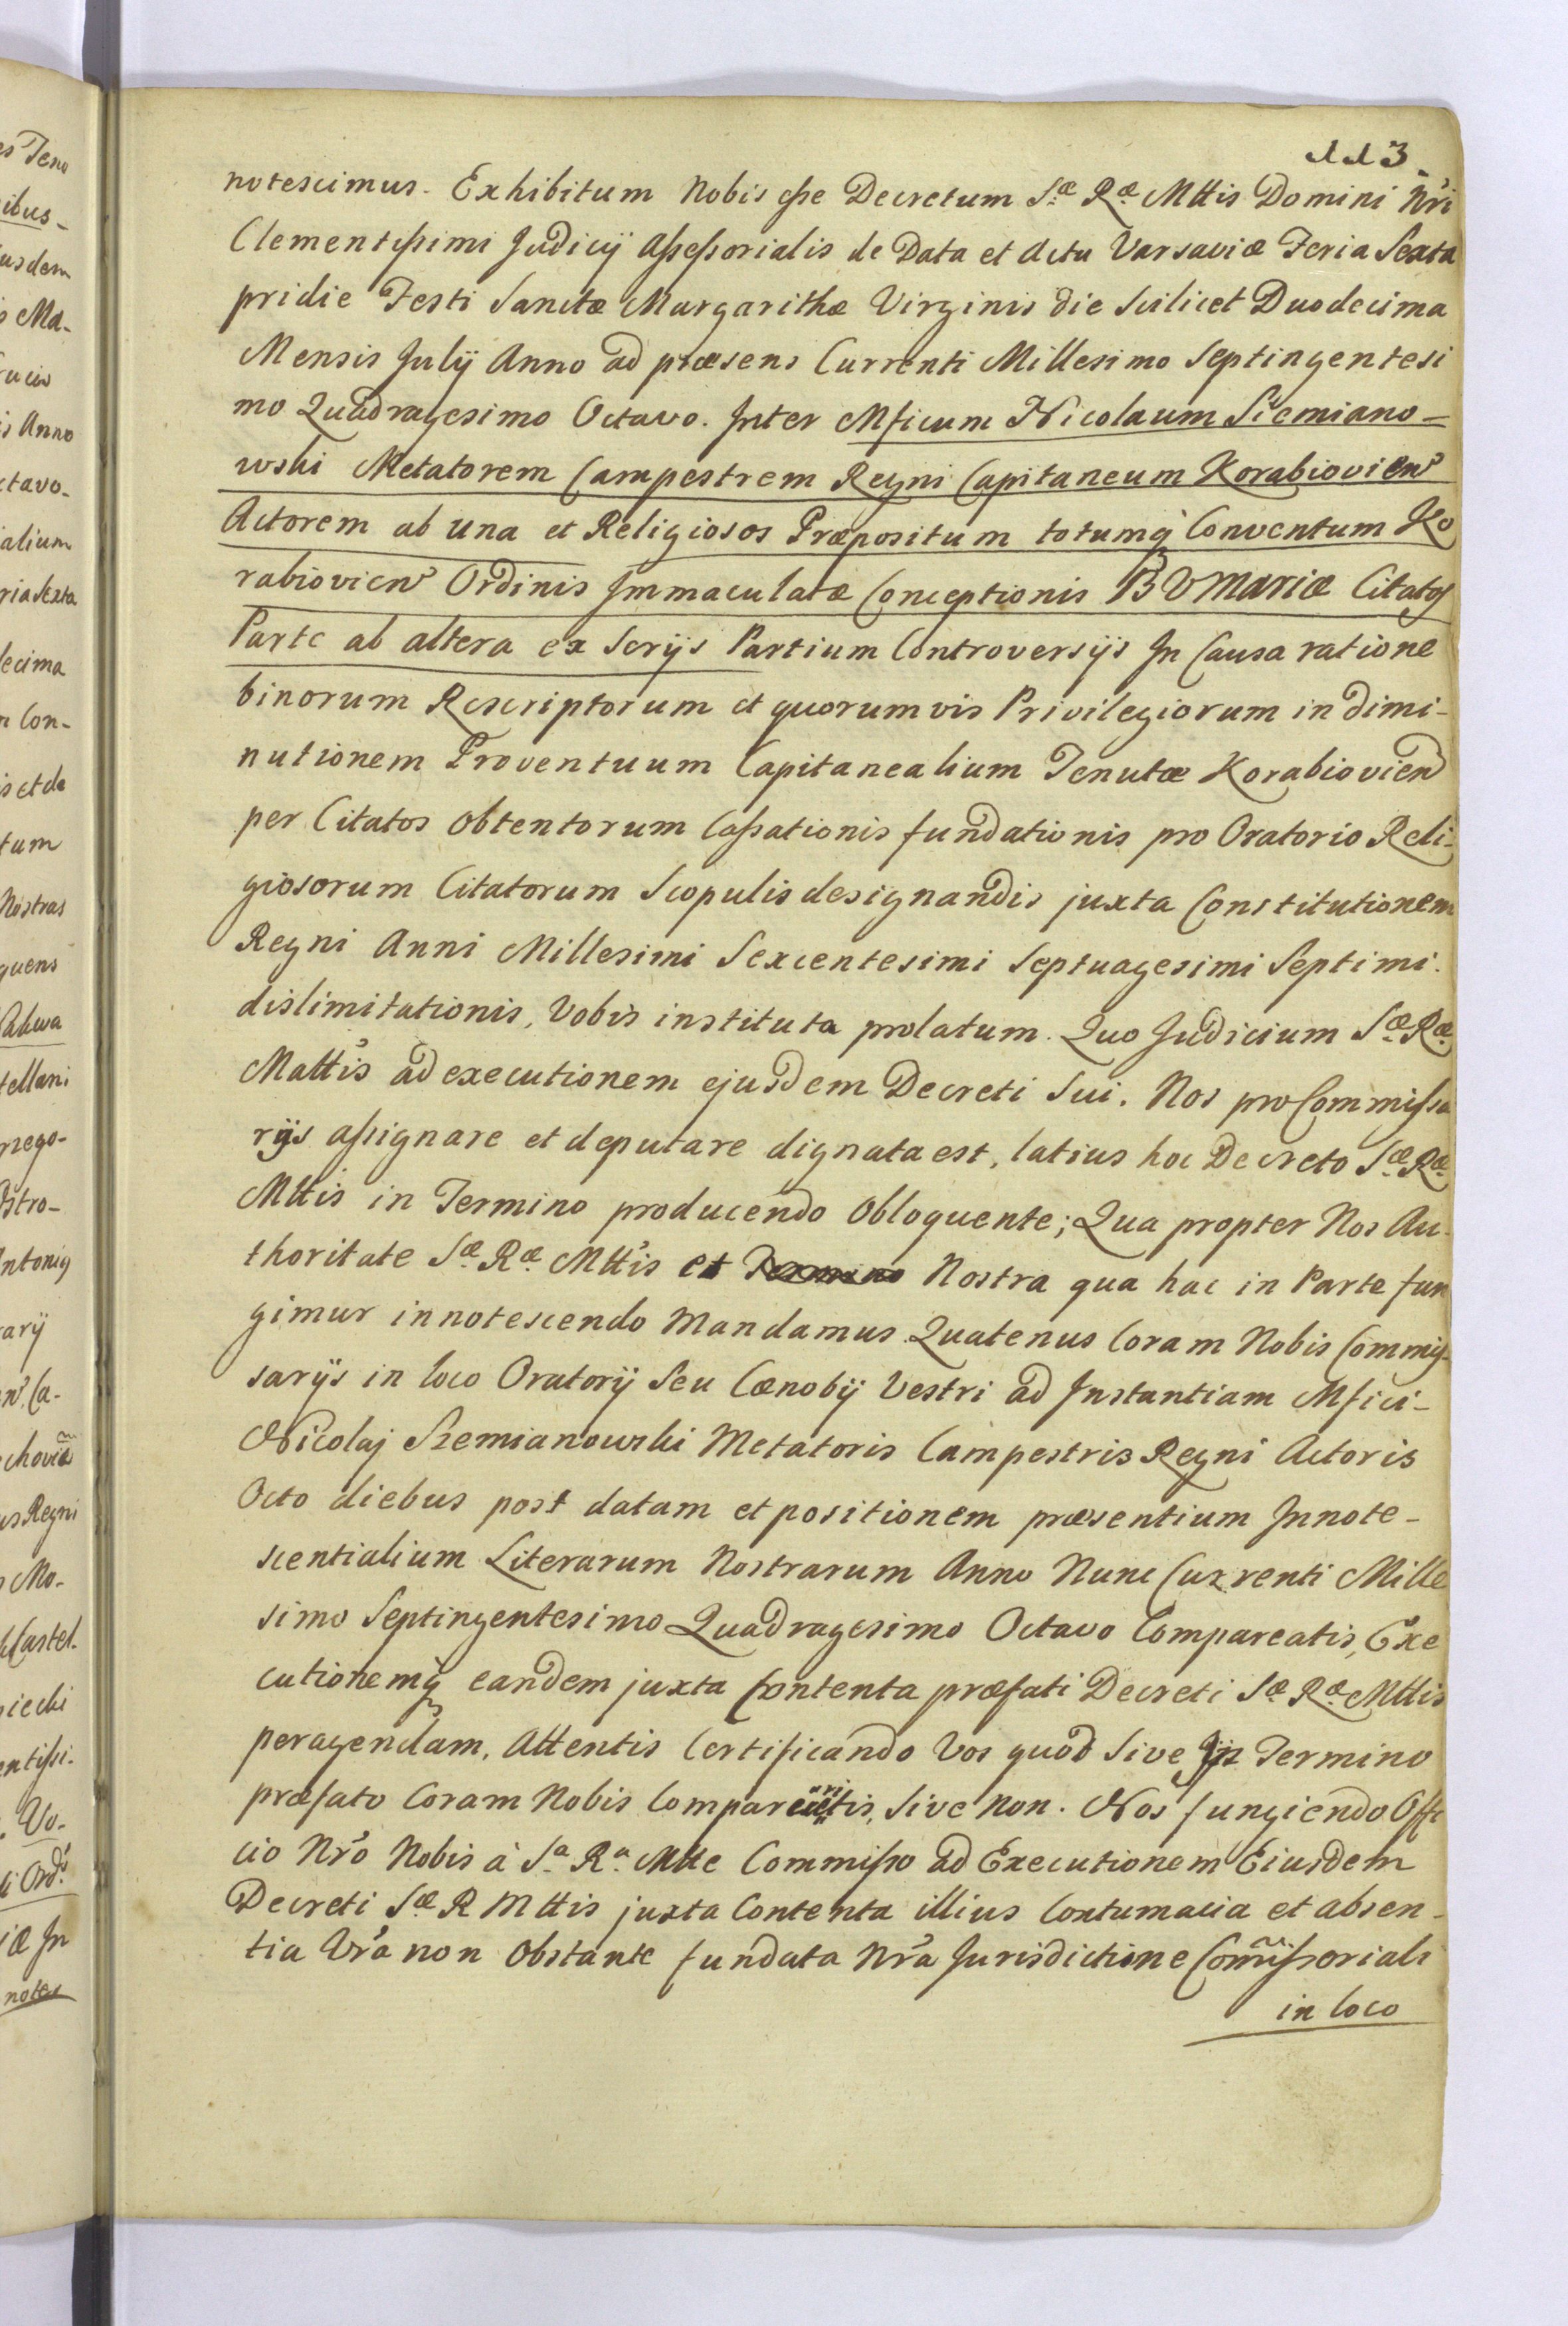 113.
notescimus. Exhibitum Nobis esse Decretum S.æ R.æ Mttis Domini Nr̃i
Clementissimi Judicij Assessorialis de Data et Actu Varsaviæ Feria Sexta
pridie Festi Sanctæ Margarithæ Virginis die Scilicet Duodecima
Mensis Julij Anno ad præsens Currenti Millesimo Septingentesi
mo Quadragesimo Octavo. Inter Mficum Nicolaum Siemiano=
wski Metatorem Campestrem Regni Capitaneum Korabiovien̄
Actorem ab una et Religiosos Præpositum totumq̀ Conventum Ko
rabiovien̄ Ordinis Immaculatæ Conceptionis B V Mariæ Citatos
Parte ab altera ex Serijs Partium Controversijs In Causa ratione
binorum Rescriptorum et quorumvis Privilegiorum in dimi-
nutionem Proventuum Capitanealium Tenutæ Korabiovien̄
per Citatos obtentorum Cassationis fundationis pro Oratorio Reli-
giosorum Citatorum Scopulis designandis juxta Constitutionem
Regni Anni Millesimi Sexcentesimi Septuagesimi Septimi.
dislimitationis, Vobis instituta prolatum. Quo Judicium S.æ R.æ
Mattis ad executionem ejusdem Decreti Sui. Nos pro Commissa
rijs assignare et deputare dignata est, latius hoc Decreto S.æ R.æ
Mttis in Termino producendo Obloquente; Qua propter Nos Au-
thoritate S.æ R.æ Mttis et Termino Nostra qua hac in Parte fun
gimur innotescendo Mandamus Quatenus Coram Nobis Commis-
sarijs in loco Oratorij Seu Cœnobij Vestri ad Instantiam Mfici-
Nicolaj Szemianowski Metatoris Campestris Regni Actoris
Octo diebus post datam et positionem præsentium Innote-
scentialium Literarum Nostrarum Anno Nunc Currenti Mille
simo Septingentesimo Quadragesimo Octavo Compareatis, Exe
cutionemq̀ eandem juxta Contenta præfati Decreti S.æ R.æ Mttis
peragendam, Attentis Certificando Vos quod Sive In Termino
præfato Coram Nobis Comparueritis, Sive non. Nos fungiendo Offi
cio Nr̃o Nobis à S.a R.a Mtte Commisso ad Executionem Eiusdem
Decreti S.æ R Mttis juxta Contenta illius Contumacia et absen-
tia Vr̃a non Obstante fundata Nr̃a Jurisdictione Com̃issoriali
in loco